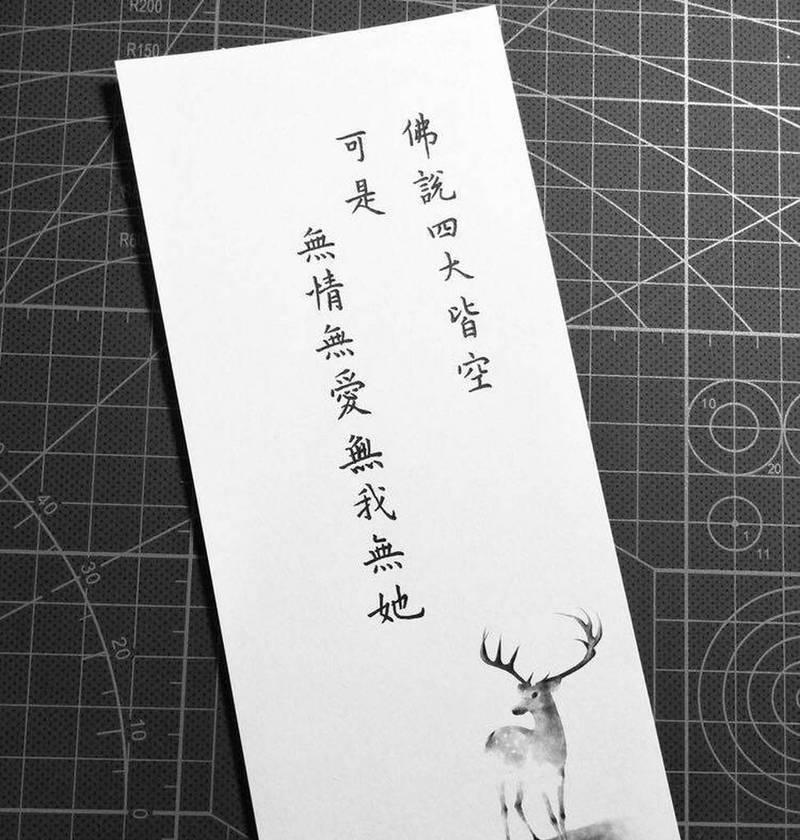 佛說四大皆空
可是
無情無愛無我無她
R200
R150
40
30
20
10
0
10
20
1
11